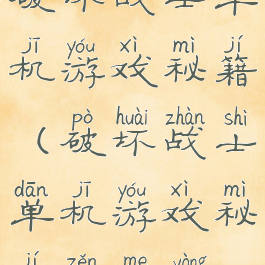 破坏战士单
jī yóu xì mì jí
机游戏秘籍
pò huài zhàn shì
（破坏战士
dān jī yóu xì mì
单机游戏秘
jí zěn me yòng